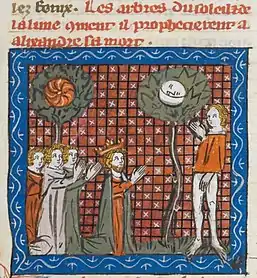 Les arbres du soleil ⁊ de
la lune ꝯment il prophecierent a
alixandre sa mort.